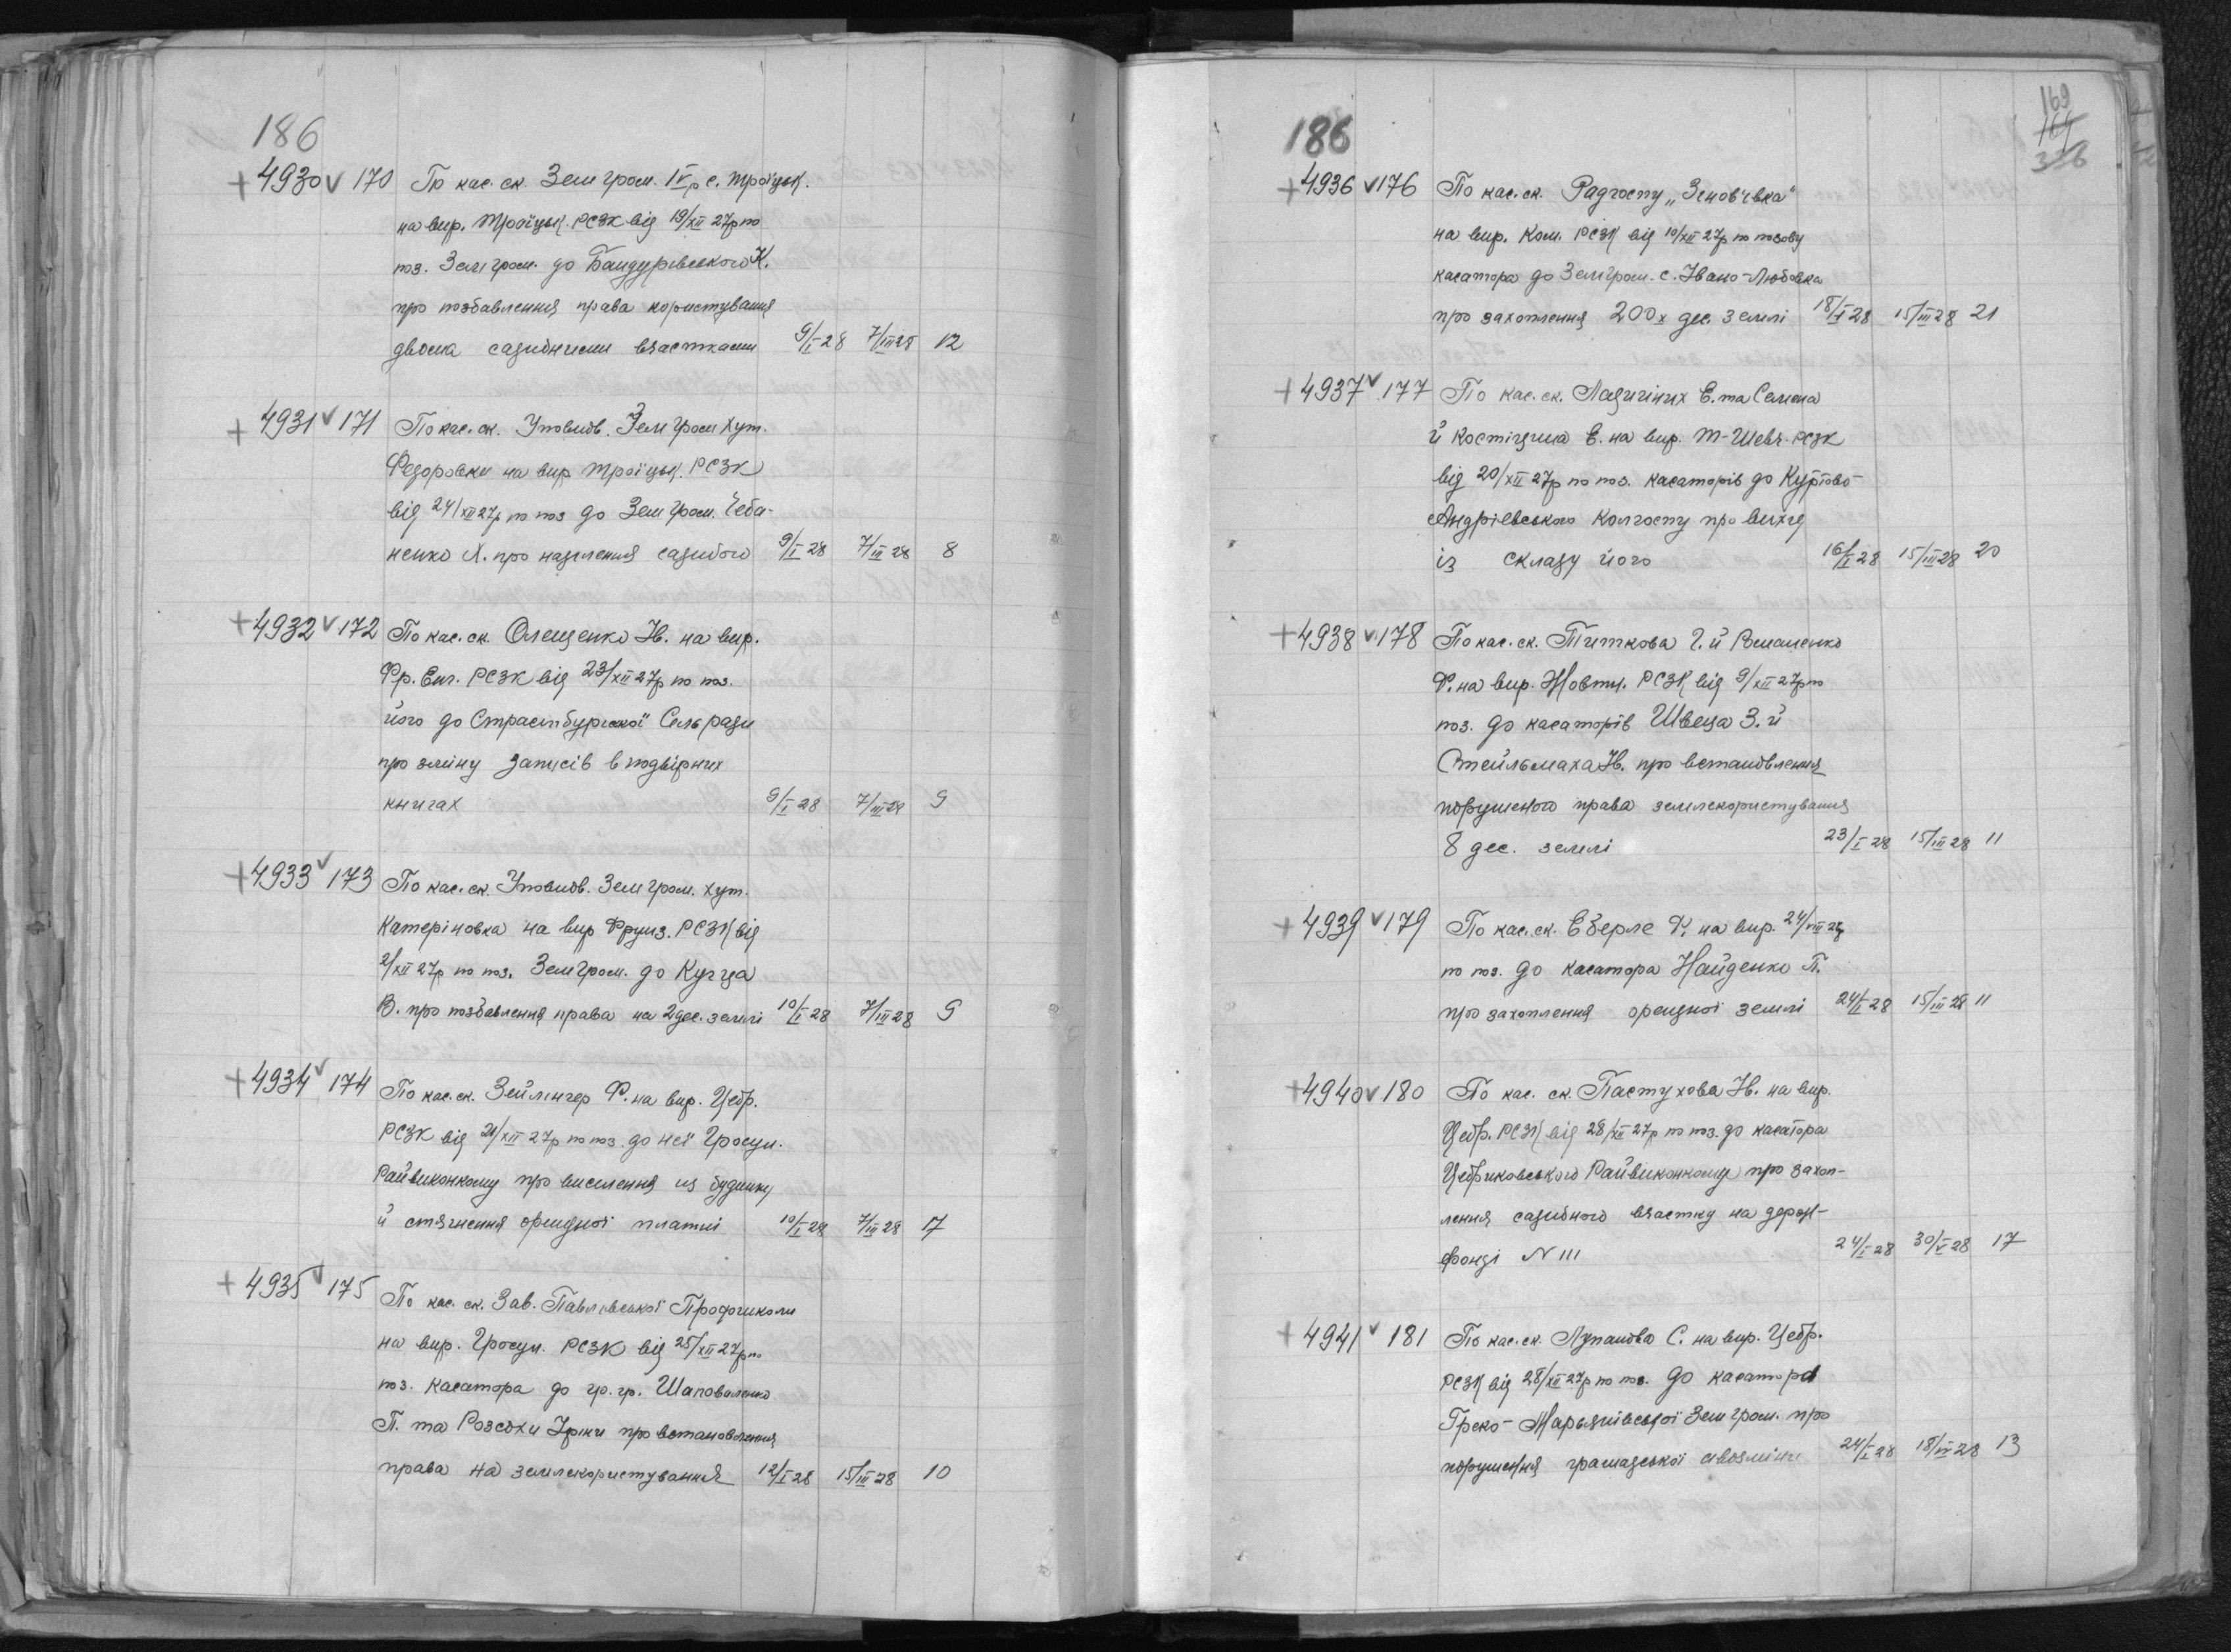 186
+ 4930 v 170 По кас. ск. Земгром. IV р с. Троїцьк.
на вир. Троїцьк. РСЗК від 19/XII 27р по
поз. Земгром. до Бандурівського К.
про позбавлення права користування
двома садибними вчастками 9/I-28 7/III 28 12
+ 4931 v 171 По кас. ск. Уповнов. Земгром хут.
Федоровки на вир Троїцьк. РСЗК
від 24/XII 27р по поз до Земгром. Чеба-
ненко Х. про наділення садибою 9/I 28 7/III 28 8
+ 4932 v 172 По кас. ск. Олещенко Ів. на вир.
Фр. Енг. РСЗК від 23/XII 27р по поз.
його до Страсенбурської Сельради
про зміну записів в подвірних
книгах 9/I 28 7/III 28 9
+ 4933 v 173 По кас. ск. Уповнов. Земгром. хут.
Катеріновка на вир Фрунз. РСЗК від
2/XII 27р по поз. Земгром. до Кугца
В. про позбавлення права на 2 дес. землі 10/I 28 7/III 28 9
+ 4934 v 174 По кас. ск. Зейлінгер Ф. на вир. Цебр.
РСЗК від 21/XII 27р по поз. до неї Гросул.
Райвиконкому про виселення из будинку
й стягнення орендної платні 10/I 28 7/III 28 17
+ 4935 v 175 По кас. ск. Зав. Павлівської Профшколи
на вир. Гросул. РСЗК від 25/XII 27р по
поз. касатора до гр. гр. Шаповаленко
П. та Розсохи Іріни про встановлення
права на землекористування 12/I 28 15/III 28 10
169
164
336
186
+ 4936 v 176 По кас. ск. Радгоспу „Зенов'євка"
на вир. Ком. РСЗК від 10/XII 27р по позову
касатора до Земгром. с. Івано-Любовка
про захоплення 200х дес. землі 18/I 28 15/III 28 21
+ 4937 v 177 По кас. ск. Ладичіних Е. та Семена
й Костіціна Е. на вир. Т-Шевч. РСЗК
від 20/XII 27р по поз. касаторів до Куртово-
Андрієвського Колгоспу про вихід
із складу його 16/I 28 15/III 28 20
+ 4938 v 178 По кас. ск. Титкова Г. й
Ф. на вир. Жовтн. РСЗК від 9/XII 27р по
поз. до касаторів Швеца З. й
Стейльмаха Ів. про встановлення
порушеного права землекористування
8 дес. землі 23/I 28 15/III 28 11
+ 4939 v 179 По кас. ск. Еберле Ф. на вир. 24/XII 27р
по поз. до касатора Найденко П.
про захоплення орендної землі 24/I 28 15/III 28 11
+ 4940 v 180 По кас. ск. Пастухова Ів. на вир.
Цебр. РСЗК від 28/XII 27р по поз. до касатора
Цебриковського Райвиконкому про захоп-
лення садибного вчастку на держ-
фонді N 111 24/I 28 30/V 28 17
+ 4941 v 181 По кас. ск. Лупанова С. на вир. Цебр.
РСЗК від 28/XII 27р по поз. до касатора
Греко-Марьянівської Земгром. про
порушення грамадської сівозміни 24/I 28 18/IV 28 13